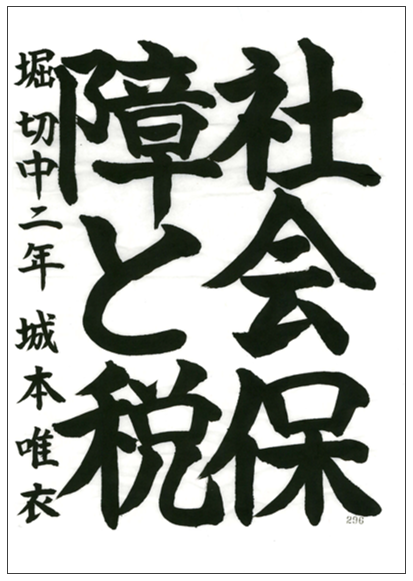 社会保
障と税
堀切中二年 城本唯衣
296